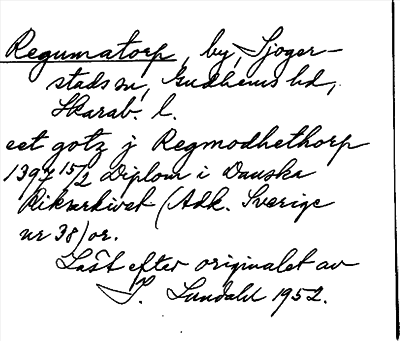 Regumatorp, by, Sjoger-
stads sn, Gudhems hd,
Skarab. l.
eet gotz j Regmodhethorp
1397 15/2 Diplom i Danska
Riksarkivet (Adk. Sverige
nr 38) or.
Läst efter originalet av
S. Lundahl 1952.